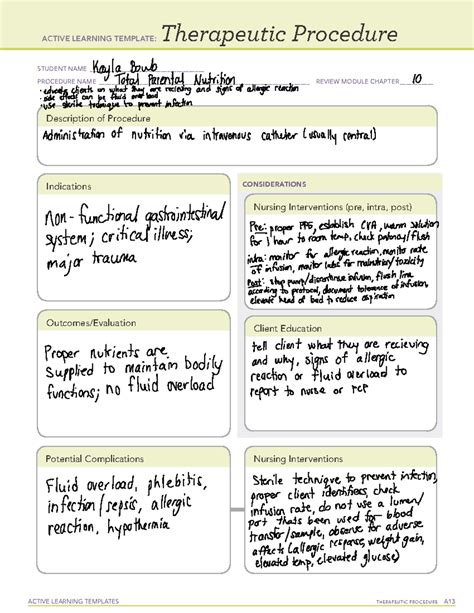 ACTIVE LEARNING TEMPLATE: Therapeutic Procedure
STUDENT NAME Kayla Bowb
PROCEDURE NAME Total Parental Nutrition REVIEW MODULE CHAPTER 10
• educate clients on what they are recieving and signs of allergic reaction
• side effects can be fluid overload
• use sterile technique to prevent infection
Description of Procedure
Administration of nutrition via intravenous catheter (usually central)
Indications
non-functional gastrointestinal
system; critical illness;
major trauma
CONSIDERATIONS
Nursing Interventions (pre, intra, post)
Pre: proper PPE, establish CVA, warm solution
for 1 hour to room temp, check patency/flush
intra: monitor for allergic reaction, monitor rate
of infusion, monitor labs for toxicity
Post: stop pump/discontinue infusion, flush line
according to protocol, document tolerance of infusion,
elevate head of bed to reduce aspiration
Outcomes/Evaluation
Proper nutrients are
supplied to maintain bodily
functions; no fluid overload
Client Education
tell client what they are recieving
and why, signs of allergic
reaction or fluid overload to
report to nurse or PCP
Potential Complications
Fluid overload, phlebitis,
infection/sepsis, allergic
reaction, hypothermia
Nursing Interventions
Sterile technique to prevent infection,
proper client identifiers, check
infusion rate, do not use a lumen/
port thats been used for blood
transfusion or draw, observe for adverse
affects (allergic response, weight gain,
elevated temp, elevated glucose)
ACTIVE LEARNING TEMPLATES THERAPEUTIC PROCEDURE A13